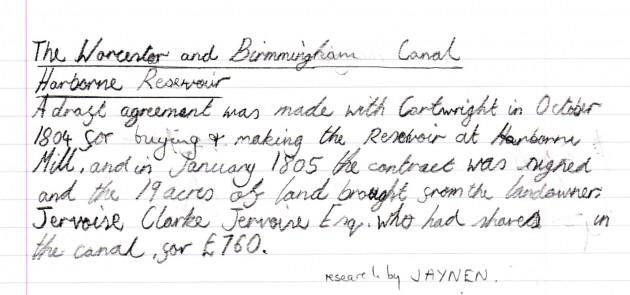 The Worcester and Birmmingham Canal
Harborne Reservoir
A draft agreement was made with Cartwright in October
1804, for buying & making the Reservoir at Harborne
Mill, and in January 1805 the contract was signed
and the 19 acres of land brought from the landowner
Jervoise Clarke Jervoise Esq. who had shares in
the canal, for £760.
research by JAYNEN.